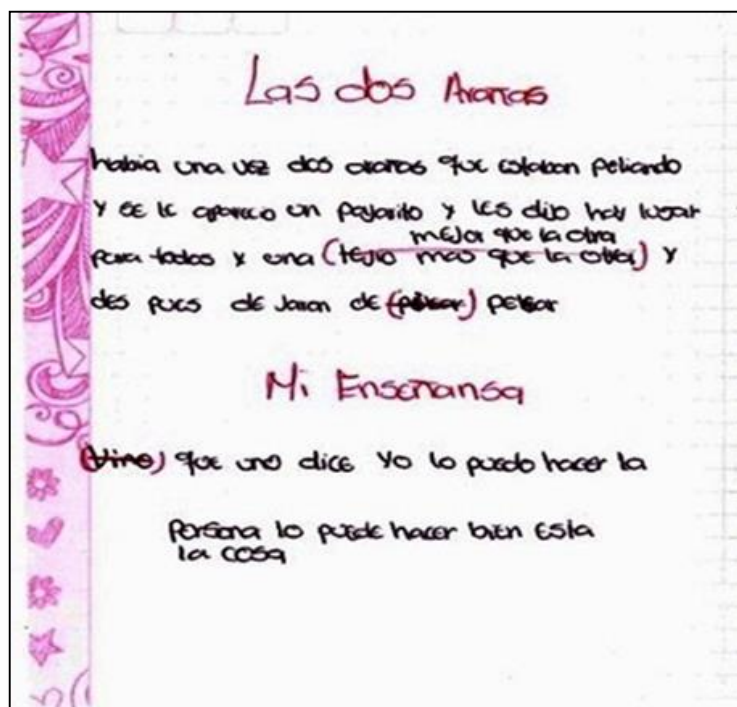 Las dos Arañas
habia una vez dos arañas que estaban peliando
y se le aparecio un pajarito y les dijo hay lugar
mejor que la otra
para todos y una (tejio mas que la otra) y
des pues de Jaron de (pelear) pelear
Mi Enseñansa
(Vino) que uno dice yo lo puedo hacer la
Persona lo puede hacer bien esta
la cosa